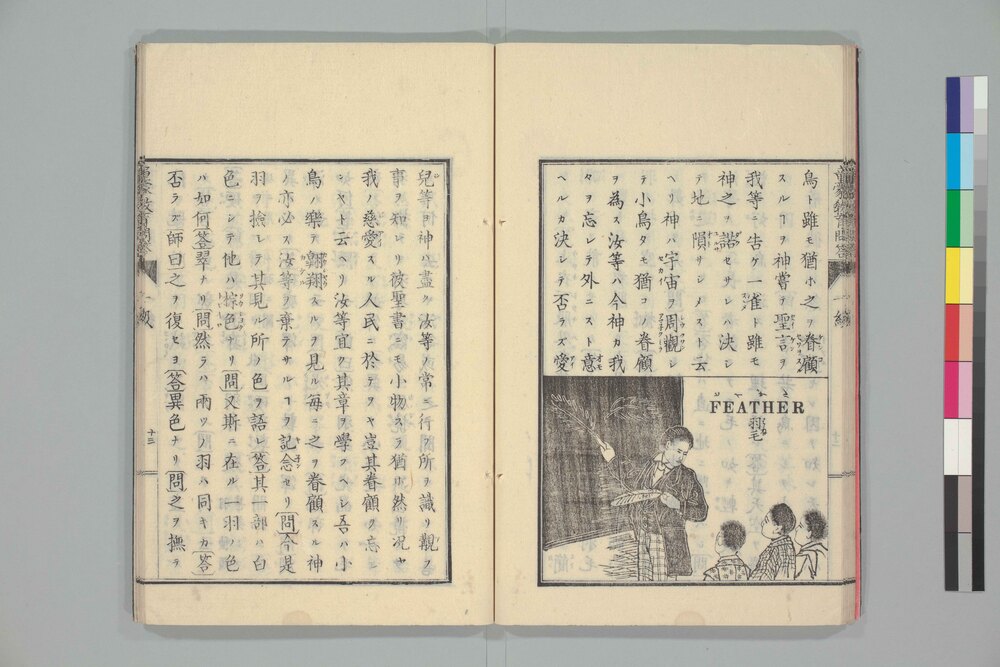 鳥ト雖モ猶ホ之ヲ眷顧
スルヿヲ神嘗テ聖言ヲ
我等ニ告ケ一雀ト雖モ
神之ヲ諾セサレハ決シ
テ地ニ隕サシメストニ云
ヘリ神ハ宇宙ヲ周觀シ
テ小鳥タモ猶コノ眷顧
ヲ為ス汝等ハ今神カ我
々ヲ忘レテ外ニスト意
ヘルカ決シテ否ラズ愛
FEATHER
羽毛
兒等ヨ神ハ盡ク汝等ノ常ニ行フ所ヲ識リ觀ノ
事ヲ知レリ彼聖書ニモ小物スラ猶ホ然リ况ヤ
我ノ慈愛スル人民ニ於テヲヤ豈其眷顧ヲ忘
ンヤト云ヘリ汝等宜ク其章ヲ學フヘシ吾ハ小
鳥ノ樂テ翺翔スルヲ見ル毎ニ之ヲ眷顧スル神
ハ亦必ス汝等ヲ棄テサルヿヲ記念セリ問今是
羽ヲ撿シテ其見ル所ノ色ヲ語レ答其一部ハ白
色ニシテ他ハ棕色ナリ問又斯ニ在ル一羽ノ色
ハ如何答翠ナリ問然ラハ兩ツノ羽ハ同キカ答
否ラズ師曰之ヲ復セヨ答異色ナリ問之ヲ撫ラ
十三